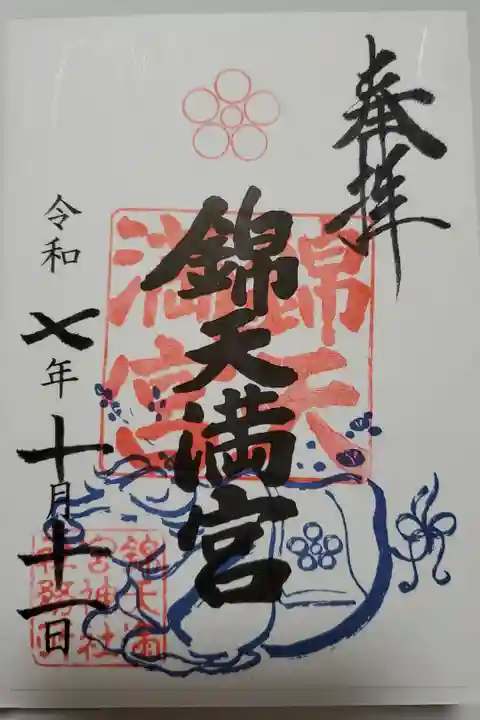 奉拝
錦天満宮
令和七年十月十一日
錦天
満宮
錦天満
宮神社